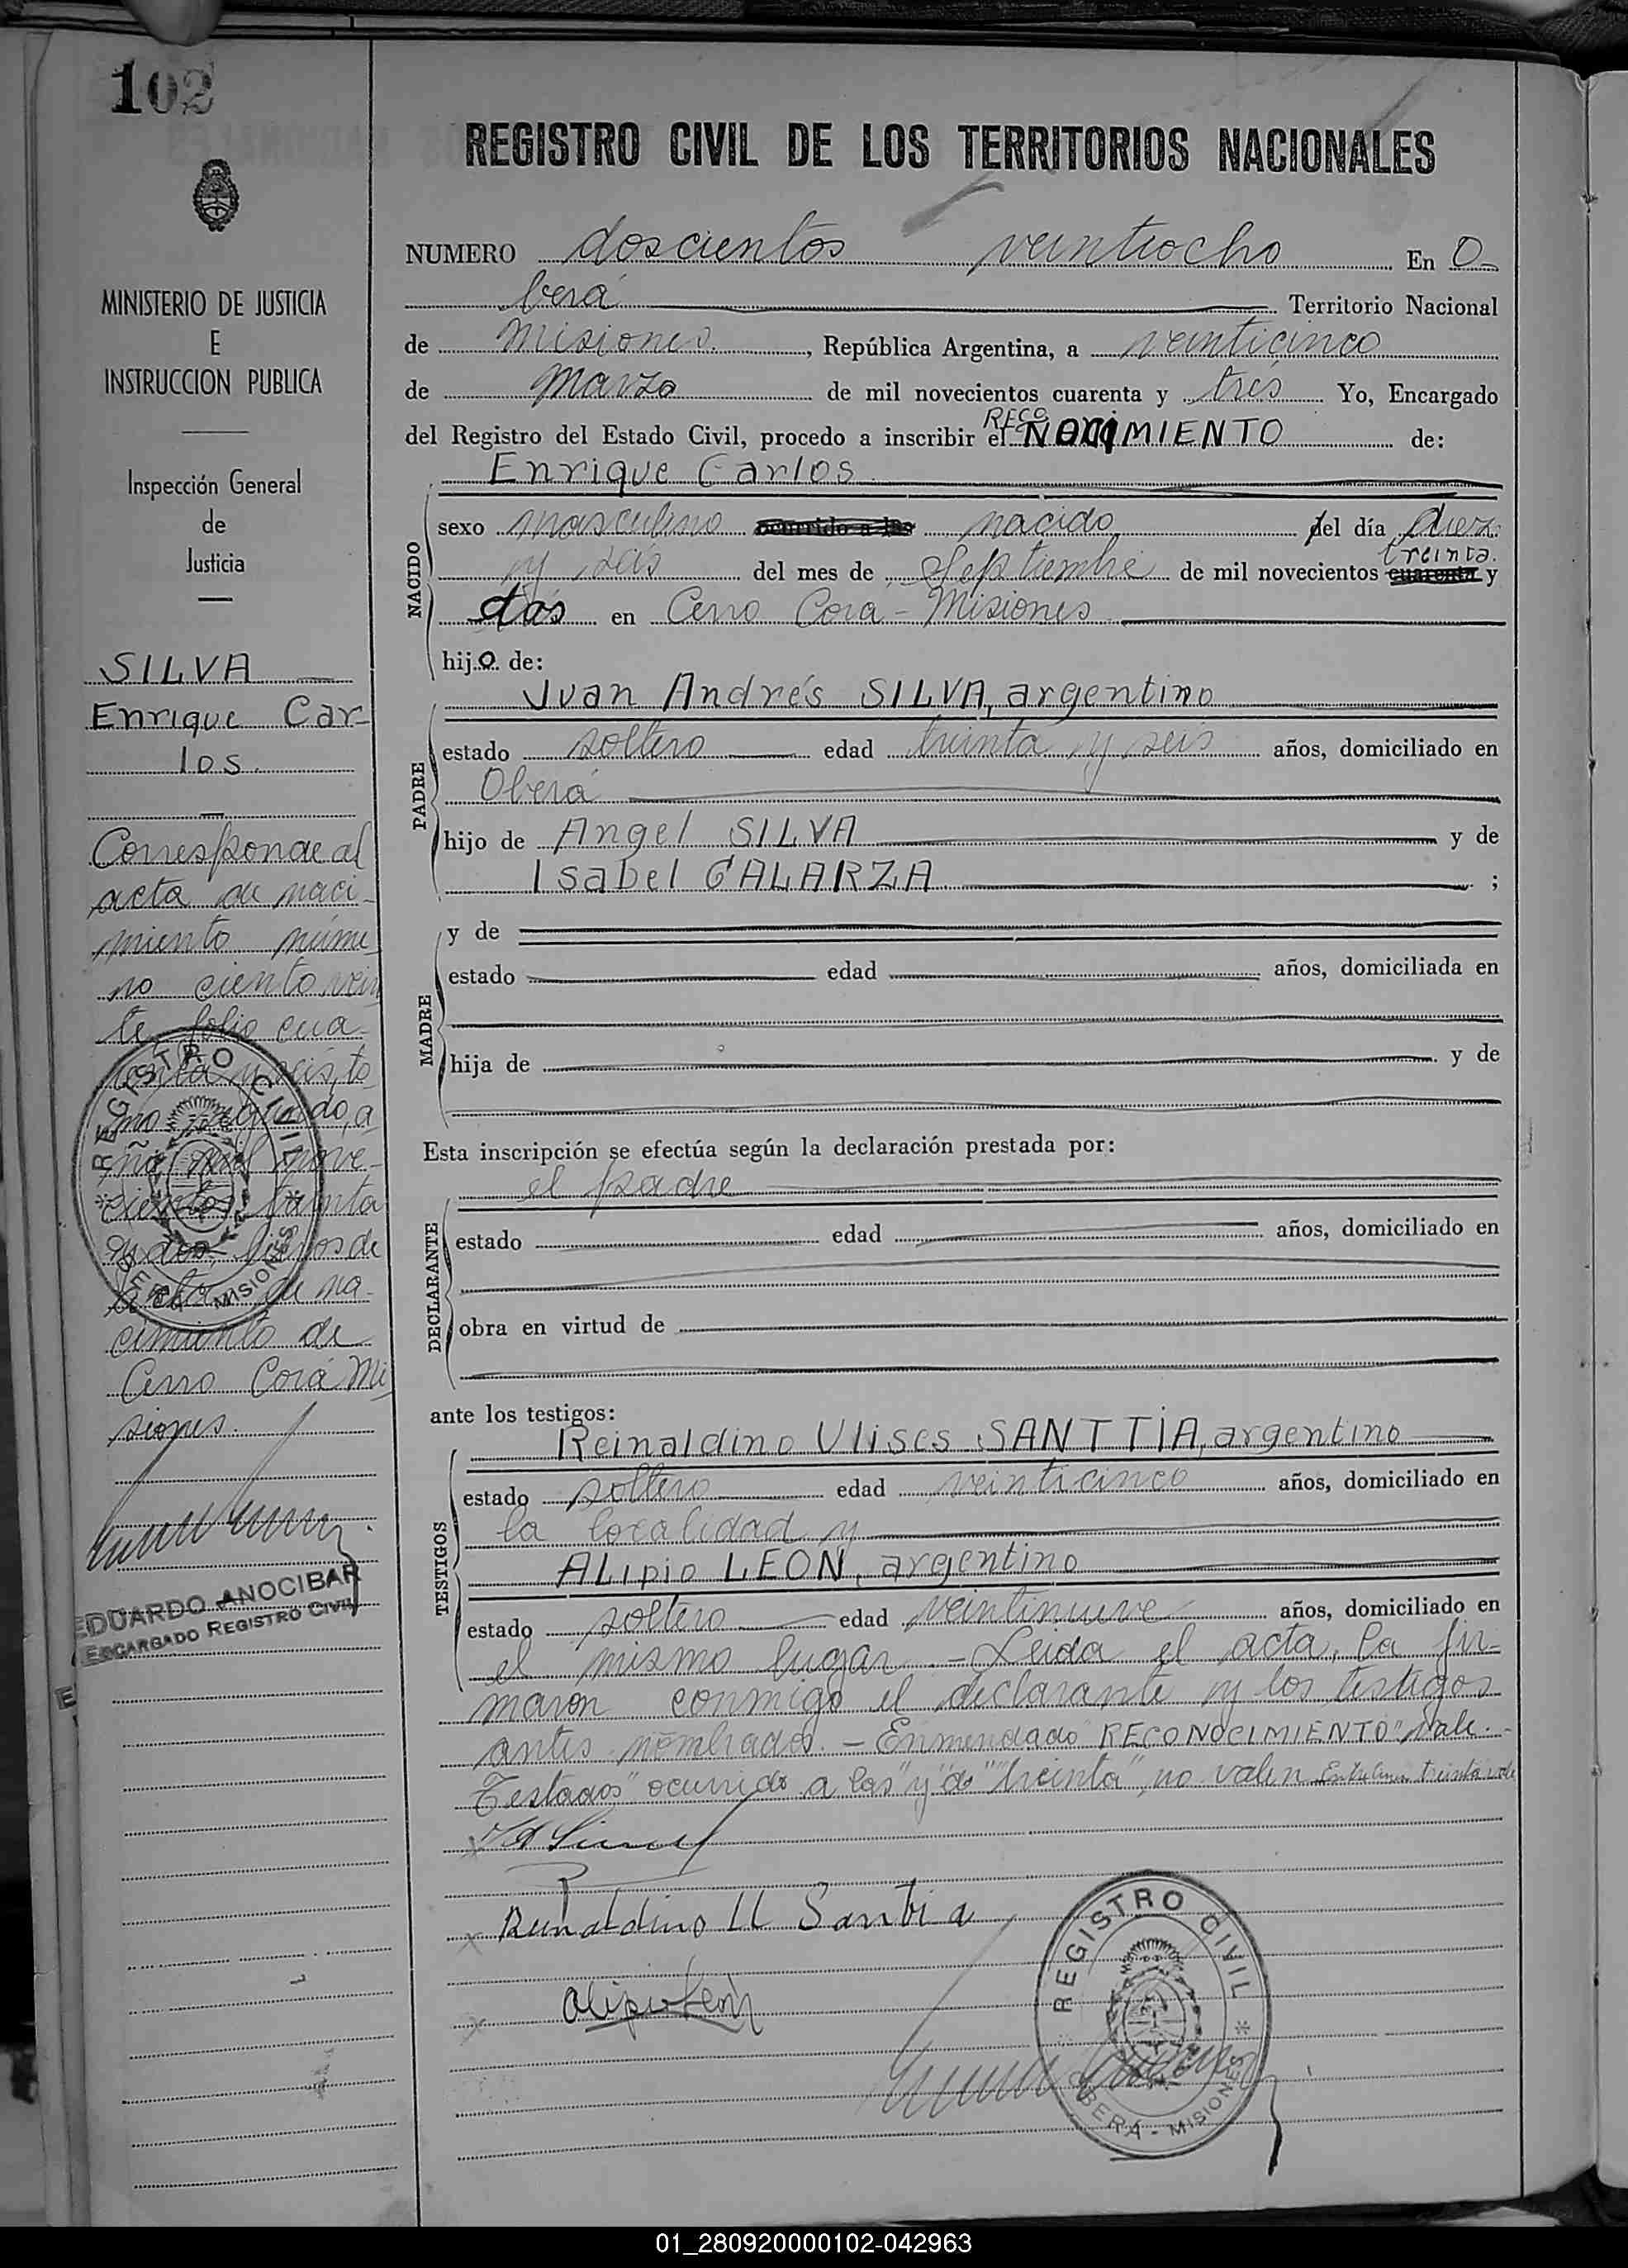 102
REGISTRO CIVIL DE LOS TERRITORIOS NACIONALES
NUMERO doscientos veintiocho En O-
berá Territorio Nacional
de Misiones. , República Argentina, a veinticinco
de marzo de mil novecientos cuarenta y tres Yo, Encargado
del Registro del Estado Civil, procedo a inscribir el RECONOCIMIENTO de:
Enrique Carlos
NACIDO
sexo masculino ocurrido a las nacido del día diez
y seis del mes de Septiembre de mil novecientos cuarenta treinta. y
dos en Cerro Corá - Misiones
hijo de:
PADRE
Juan Andrés SILVA, argentino
estado soltero edad treinta y seis años, domiciliado en
Oberá
hijo de Angel SILVA y de
Isabel GALARZA ;
MADRE
y de
estado edad años, domiciliada en
hija de y de
Esta inscripción se efectúa según la declaración prestada por:
DECLARANTE
el padre
estado edad años, domiciliado en
obra en virtud de
ante los testigos:
TESTIGOS
Reinaldino Ulises SANTTIA, argentino
estado soltero edad veinticinco años, domiciliado en
la localidad y
ALipio LEON, argentino
estado soltero edad veintinueve años, domiciliado en
el mismo lugar.- Leida el acta, la fir-
maron conmigo el declarante y los testigos
antes nombrados. - Enmendado "RECONOCIMIENTO" vale.-
Testados "ocurrido a las" y "treinta", no valen. treinta vale
Reinaldino U Santia
Alipio León
REGISTRO CIVIL
OBERÁ - MISIONES
MINISTERIO DE JUSTICIA
E
INSTRUCCION PUBLICA
Inspección General
de
Justicia
SILVA
Enrique Car-
los.
Corresponde al
acta de naci-
miento núme-
ro ciento vein
te, folio cua-
renta y seis, to
mo segundo, a
ño mil nove-
cientos treinta
y dos, libros de
de na-
cimiento de
Cerro Corá Mi
siones.
REGISTRO CIVIL
OBERÁ - MISIONES
EDUARDO ANOCIBAR
ENCARGADO REGISTRO CIVIL
01_280920000102-042963